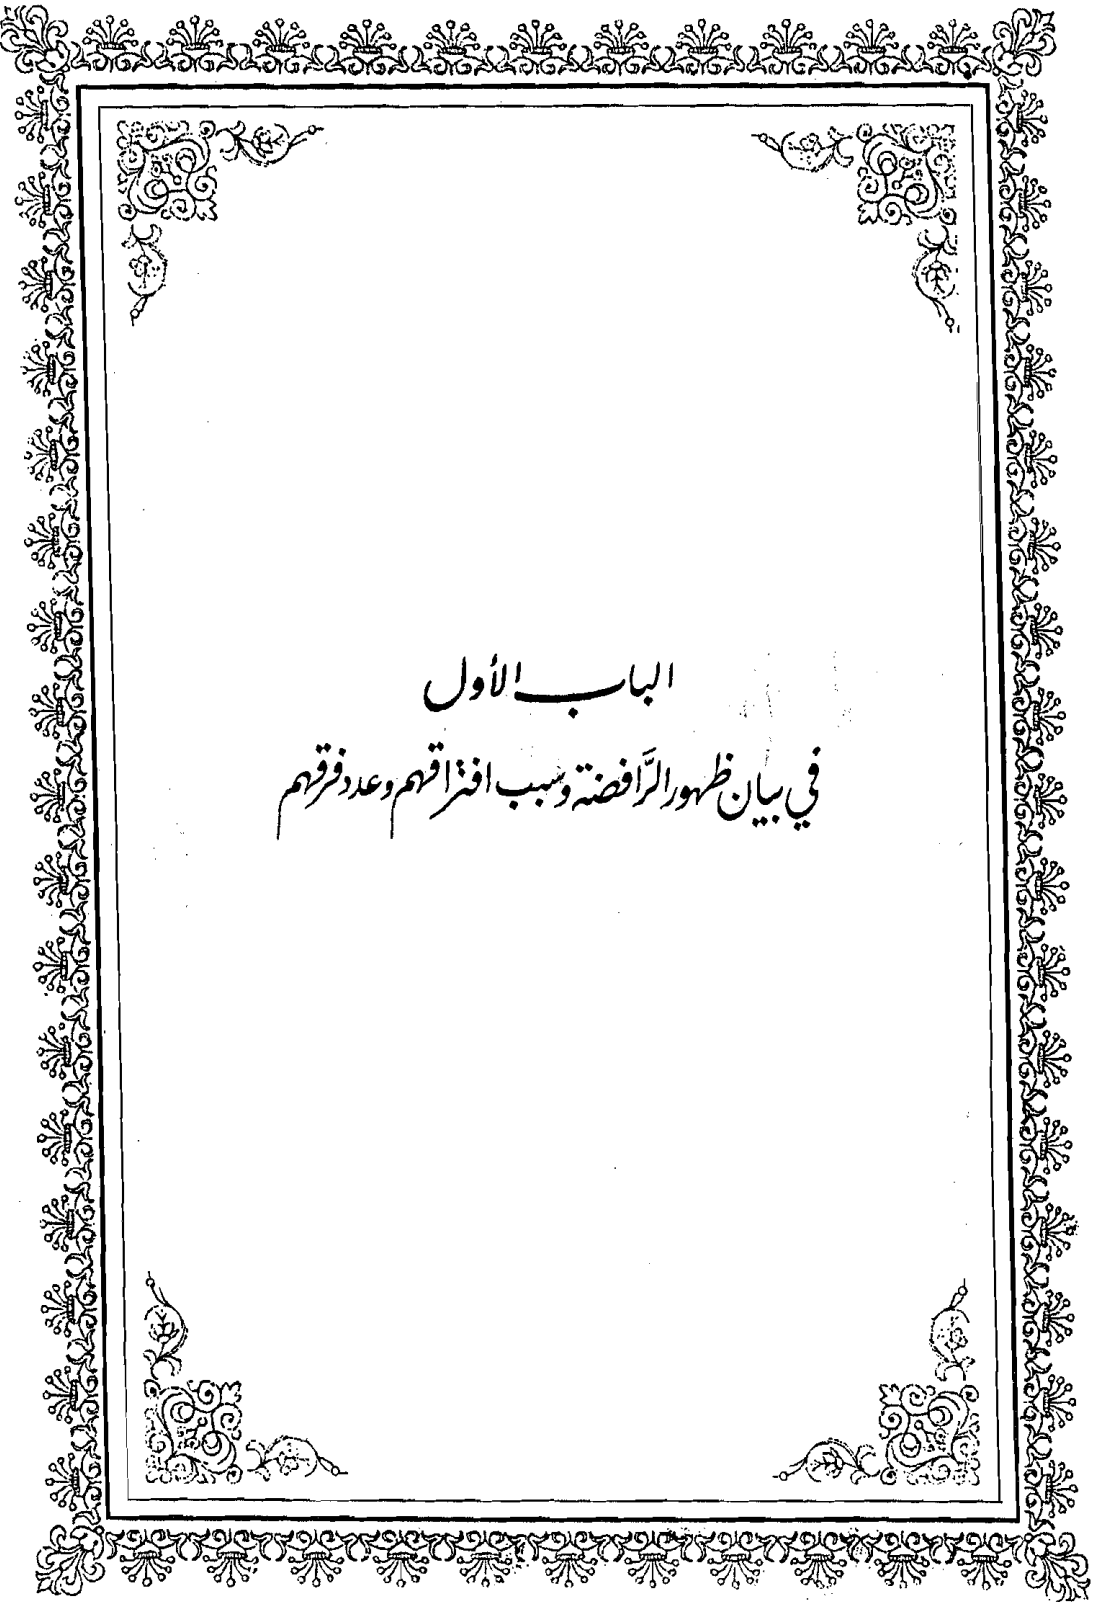 الباب الأول
في بيان ظهور الرَّافضة وسبب افتراقهم وعدد فرقهم